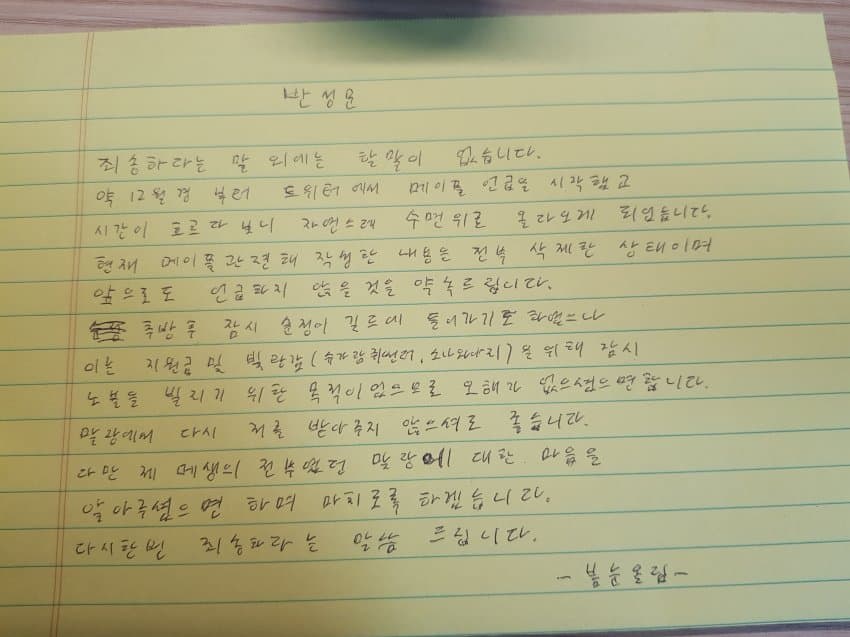 반성문
죄송하다는 말 외에는 할말이 없습니다.
약 12월경 부터 트위터에서 메이플 언급을 시작했고
시간이 흐르다 보니 자연스레 수면위로 올라오게 되었습니다.
현재 메이플관련해 작성한 내용은 전부 삭제한 상태이며
앞으로도 언급하지 않을 것을 약속드립니다.
추방후 잠시 순정이 길드에 들어가기로 하였으나
이는 지원금 및 빛란감(슈가팡 , 소나와아리)을 위해 잠시
노블을 빌리기 위한 목적이었으므로 오해가 없으셨으면합니다.
말랑에서 다시 저를 받아주지 않으셔도 좋습니다.
다만 제 메생의 전부였던 말랑에 대한 마음을
알아주셨으면 하며 마치도록 하겠습니다.
다시한번 죄송하다는 말씀 드립니다.
- 봄눈올림 -